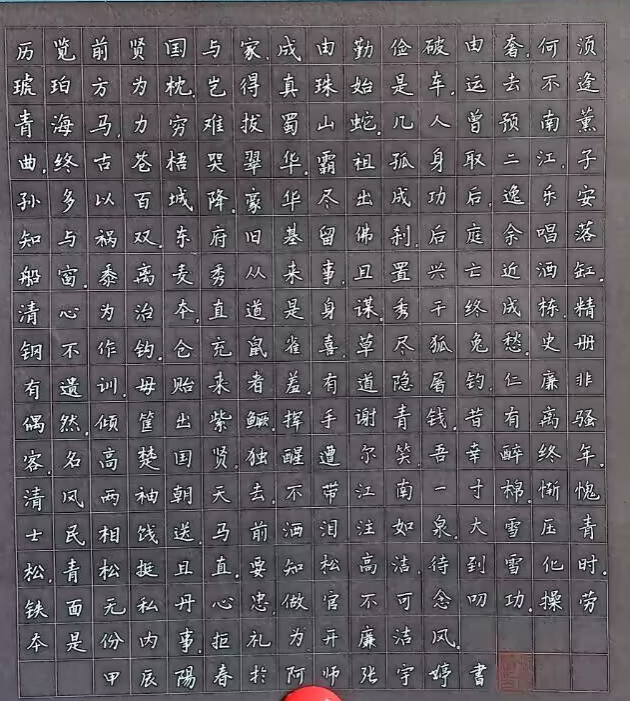 历览前贤国与家.成由勤俭破由奢.何须
琥珀方为枕.岂得真珠始是车.运去不逢
青海马.力穷难拔蜀山蛇.几人曾预南薰
曲.终古苍梧哭翠华.霸祖孤身取二江.子
孙多以百城降.豪华尽出成功后.逸乐安
知与祸双.东府旧基留佛刹.后庭余唱落
船窗.黍离麦秀从来事.且置兴亡近酒缸.
清心为治本.直道是身谋.秀干终成栋.精
钢不作钩.仓充鼠雀喜.草尽狐兔愁.史册
有遗训.毋贻来者羞.有道隐屠钓.仁廉非
偶然.倾筐出紫鳜.挥手谢青钱.昔有离骚
客.名高楚国贤.独醒遭尔笑.吾幸醉终年.
清风两袖朝天去.不带江南一寸棉.惭愧
士民相饯送.马前洒泪注如泉.大雪压青
松.青松挺且直.要知松高洁.待到雪化时.
铁面无私丹心忠.做官不可念叨功.操劳
本是份内事.拒礼为开廉洁风.
甲辰陽春於阿师张宇婷書